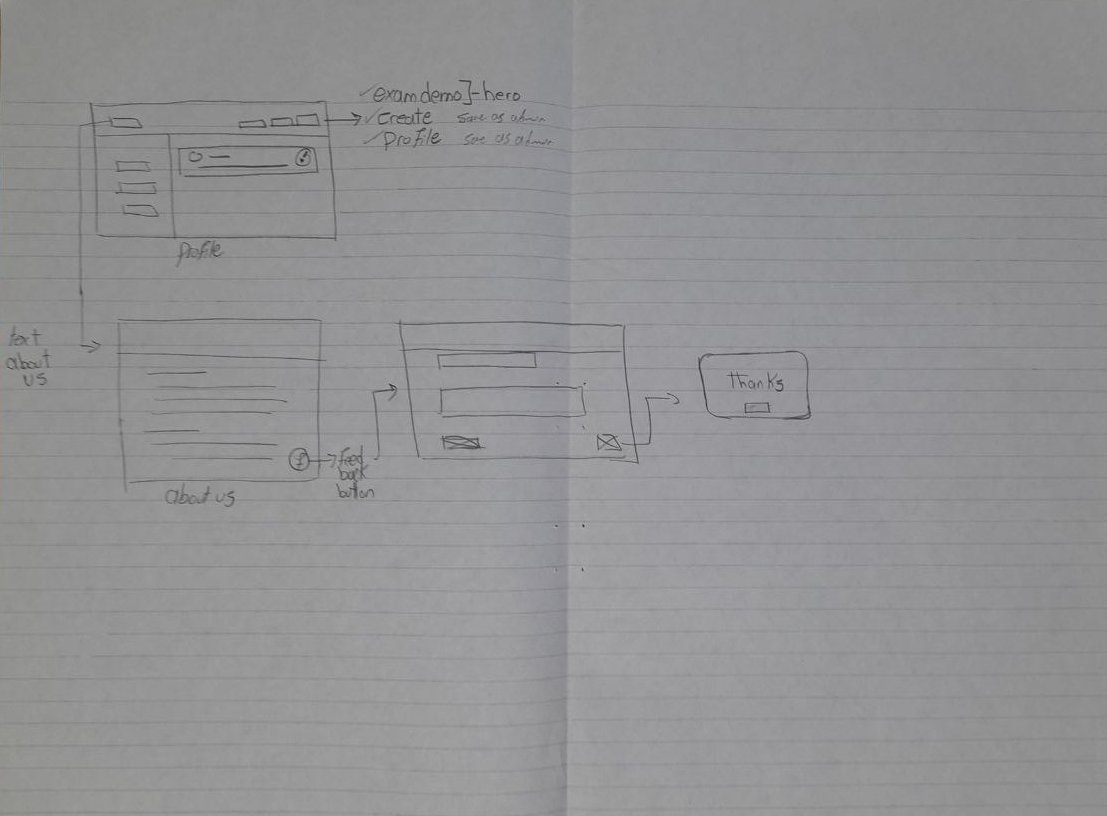 ✓examdemo]-hero
✓create same as admin
✓profile same as admin
profile
text
about
us
about us
Feed
back
button
Thanks